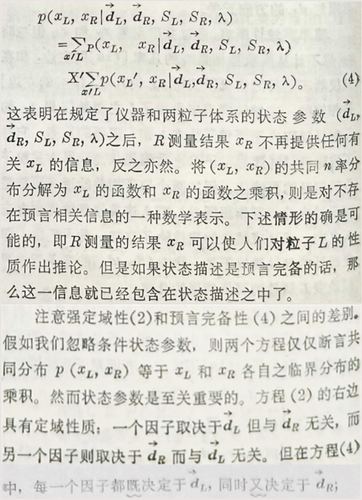 p(x_L, x_R|d⃗_L, d⃗_R, S_L, S_R, λ)
=∑_{x'L} P(x_L, x_R|d⃗_L, d⃗_R, S_L, S_R, λ)
X'∑_{x'L} p(x_L', x_R|d⃗_L,d⃗_R, S_L, S_R, λ)。 (4)
这表明在规定了仪器和两粒子体系的状态参数 (d⃗_L,
d⃗_R, S_L, S_R, λ)之后，R测量结果 x_R 不再提供任何有
关 x_L 的信息，反之亦然。将 (x_L, x_R) 的共同n率分
布分解为 x_L 的函数和 x_R 的函数之乘积，则是对不存
在预言相关信息的一种数学表示。下述情形的确是可
能的，即R测量的结果 x_R 可以使人们对粒子L的性
质作出推论。但是如果状态描述是预言完备的话，那
么这一信息就已经包含在状态描述之中了。
注意强定域性(2)和预言完备性(4)之间的差别。
假如我们忽略条件状态参数，则两个方程仅仅断言共
同分布 p (x_L, x_R) 等于 x_L 和 x_R 各自之临界分布的
乘积。然而状态参数是至关重要的。方程(2)的右边
具有定域性质：一个因子取决于 d⃗_L 但与 d⃗_R 无关，而
另一个因子则取决于 d⃗_R 而与 d⃗_L 无关。但在方程(4)
中，每一个因子都既决定于 d⃗_L，同时又决定于 d⃗_R；